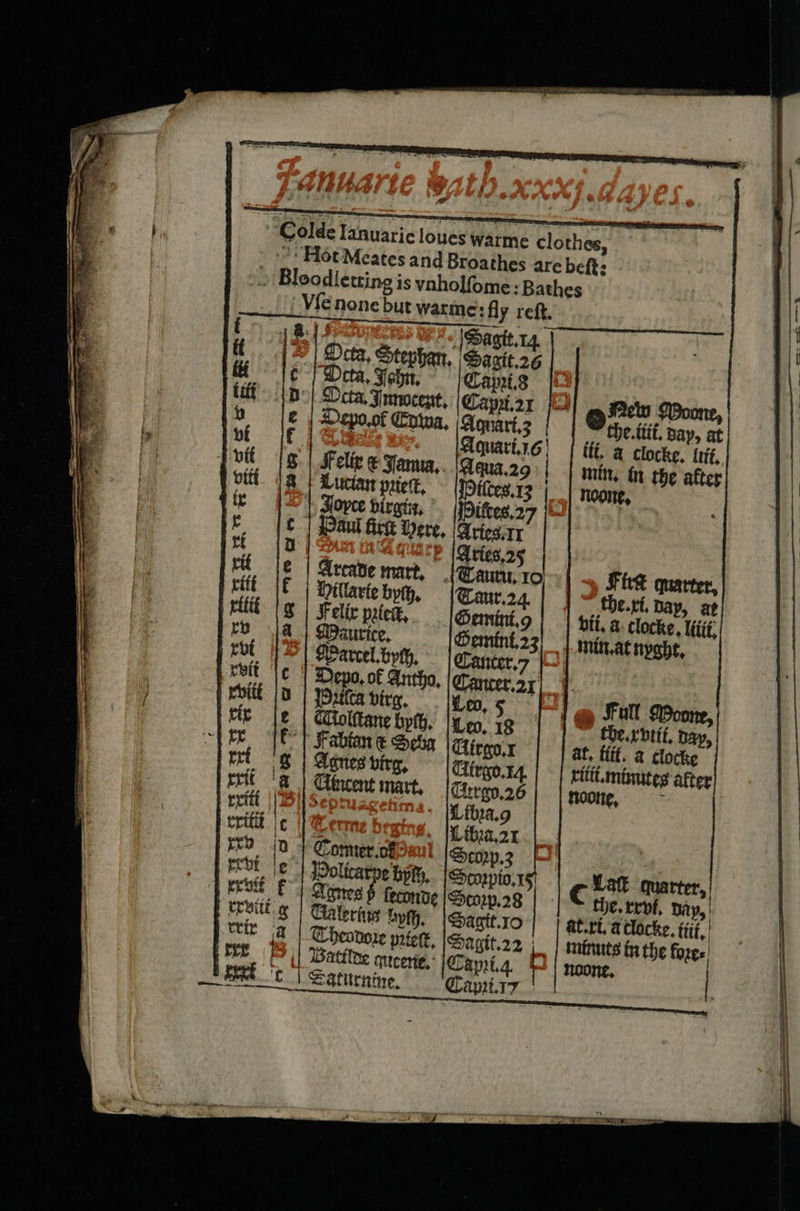 Januarie hath.xxxj.dayes.
Colde Ianuarie loues warme clothes,
Hot Meates and Broathes are best:
Bloodletting is vnholsome: Bathes
Vse none but warme: fly rest.
i a Sagit.14
ii B Octa, Stephan. Sagit.26
iii c Octa, John. Capri.8
iiii D Octa, Innocent, Capri.21
v e Depo.of Edwa, Aquari.3
vi f Aquari.16
vii g Felix & Janua, Aqua.29
viii a Lucian priest, Pisces.13
ix B Joyce virgin, Pisces.27
x c Paul first Here, Aries.11
xi D Sun in Aquary Aries.25
xii e Arcade mart, Tauru.10
xiii f Hillarie bysh, Taur.24
xiiii g Felix priest, Gemini.9
xv a Maurice, Gemini.23
xvi B Marcel.bysh. Cancer.7
xvii c Depo, of Antho, Cancer.21
xviii D Prisca virg. Leo. 5
xix e Wolstane bysh. Leo. 18
xx f Fabian & Seba Virgo.1
xxi g Agnes virg, Virgo.14
xxii a Vincent mart, Virgo.26
xxiii B Septuagesima. Libra.9
xxiiii c Terme begins. Libra.21
xxv D Conuer.of Paul Scorp.3
xxvi e Policarpe bysh. Scorpio.15
xxvii f Agnes þ seconde Scorp.28
xxviii g Valerius bysh. Sagit.10
xxix a Theodore priest, Sagit.22
xxx B Batilde queene. Capri.4
xxxi c Saturnine. Capri.17
New Moone,
the.iiii. day, at
iii. a clocke. liii.
min. in the after
noone,
First quarter,
the.xi. day, at
vii. a clocke, liiii.
min.at nyght.
Full Moone,
the.xviii. day,
at. iiii. a clocke
xiiii.minutes after
noone,
Last quarter,
the.xxvi. day,
at.xi. a clocke. iiii.
minuts in the fore-
noone.